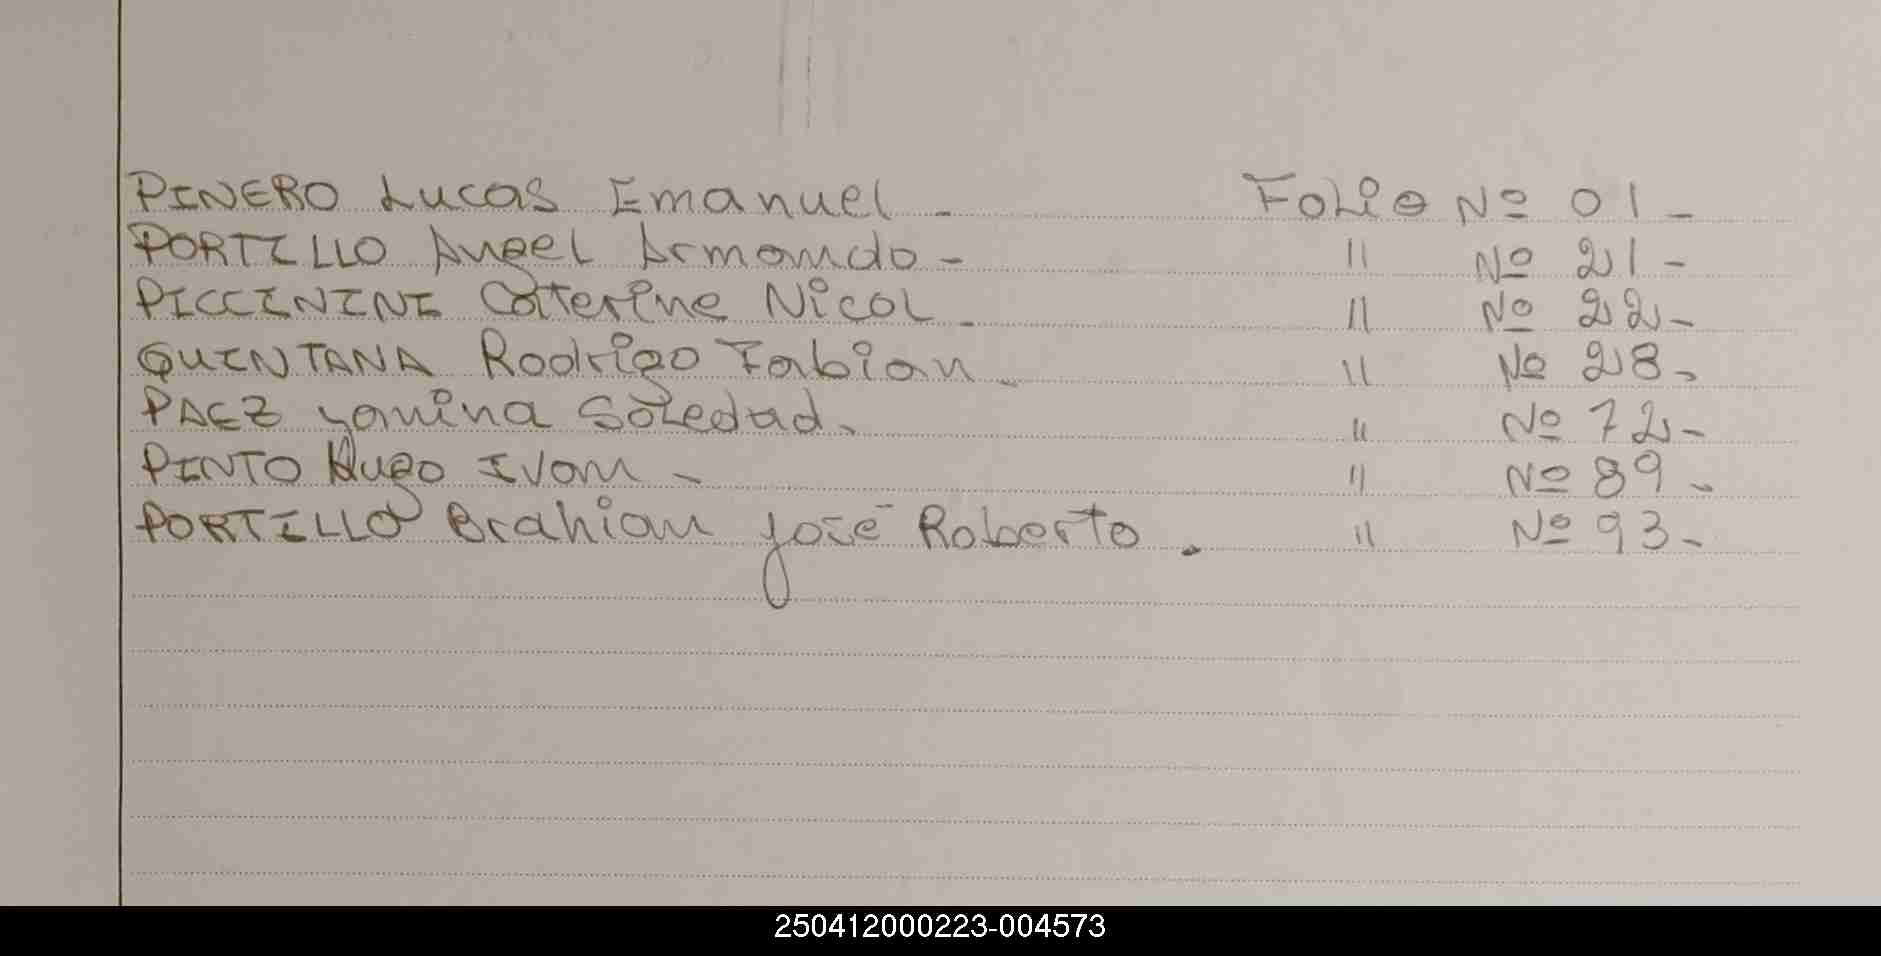 PINERO Lucas Emanuel - Folio Nº 01 -
PORTILLO Angel Armando - " Nº 21 -
PICCININI Caterine Nicol - " Nº 22 -
QUINTANA Rodrigo Fabian - " Nº 28 -
PAEZ yanina Soledad - " Nº 72 -
PINTO Hugo Ivan - " Nº 89 -
PORTILLO Brahian José Roberto . " Nº 93 -
250412000223-004573